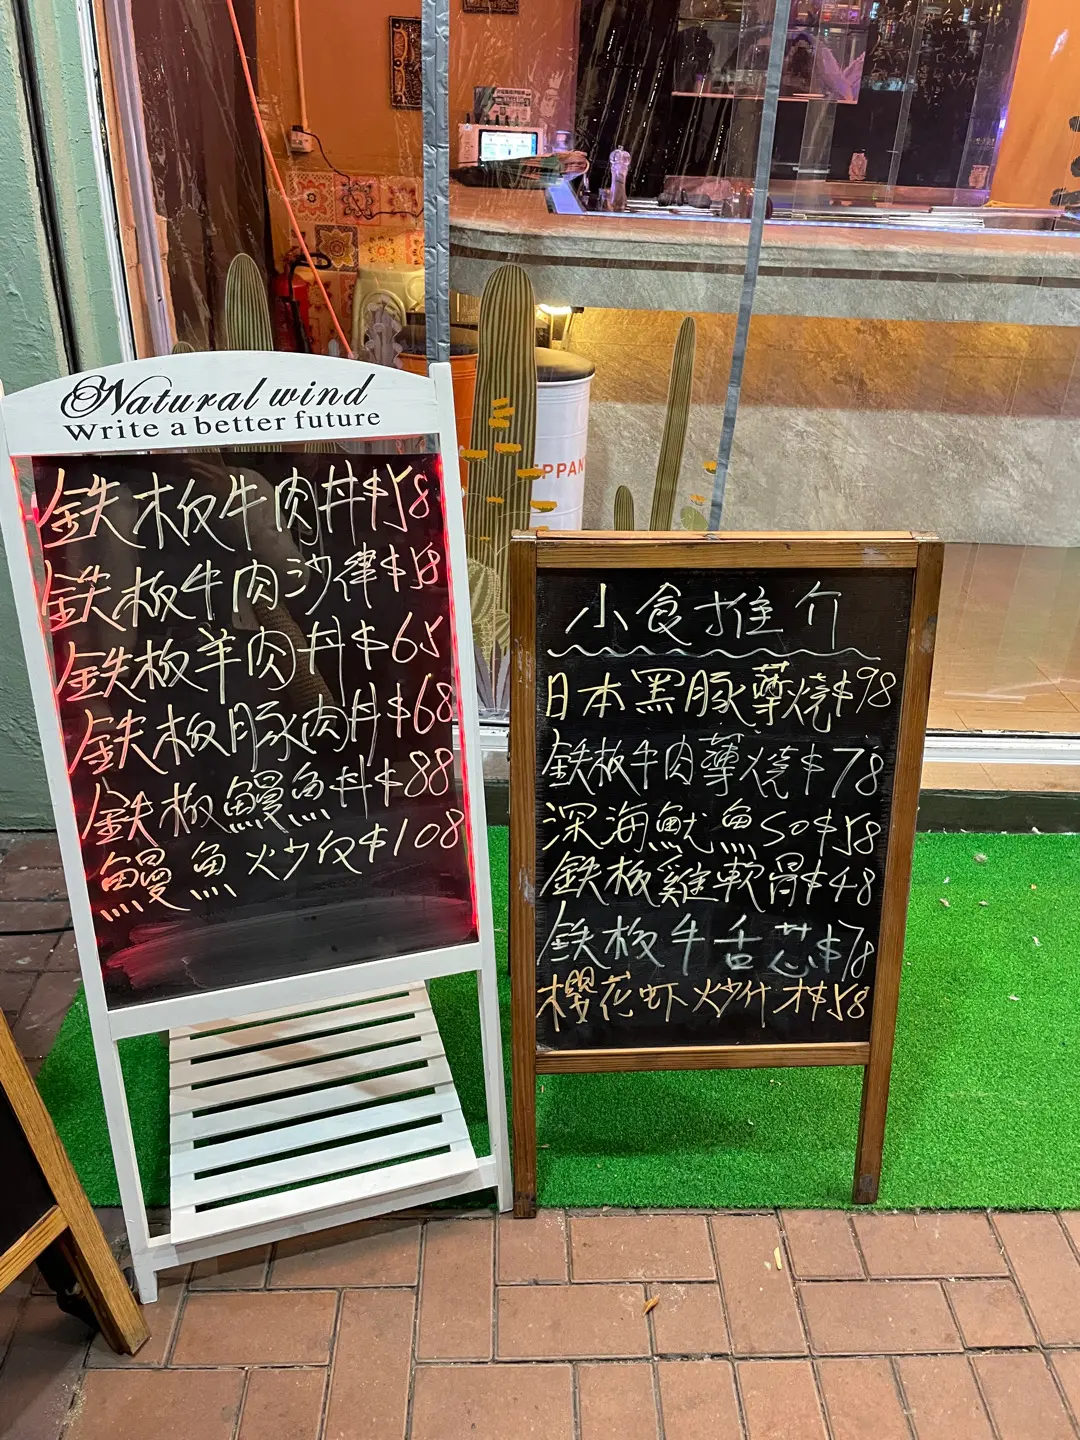 Natural wind
Write a better future
鉄板牛肉丼$58
鉄板牛肉沙律$58
鉄板羊肉丼$65
鉄板豚肉丼$68
鉄板鰻魚丼$88
鰻魚炒反$108
PPAN
小食推介
日本黑豚薄燒$98
鉄板牛肉薄燒$78
深海魷魚SO$58
鉄板雞軟骨$48
鉄板牛舌芯$78
櫻花虾炒什木$58